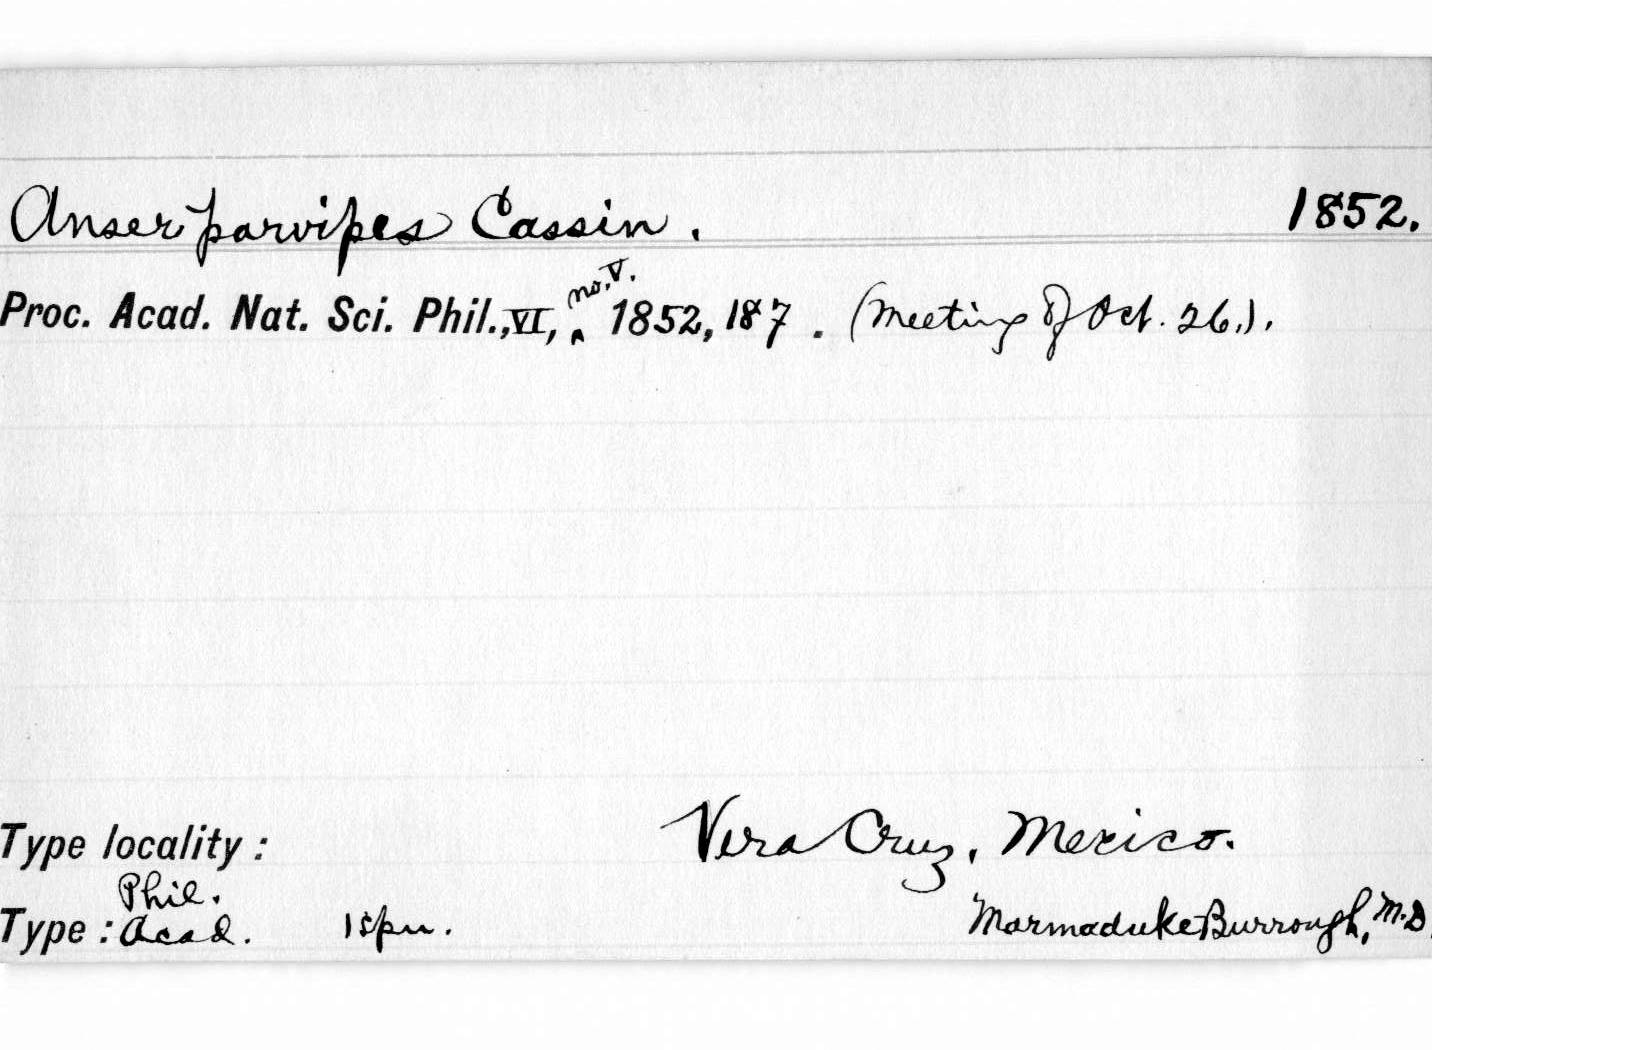 Anser parvipes Cassin. 1852.
no. V.
Proc. Acad. Nat. Sci. Phil., VI, ‸ 1852, 187. (Meeting of Oct. 26.).
Type locality: Vera Cruz, Mexico.
Phil.
Type: Acad. 1 spn. Marmaduke Burrough, M.D.